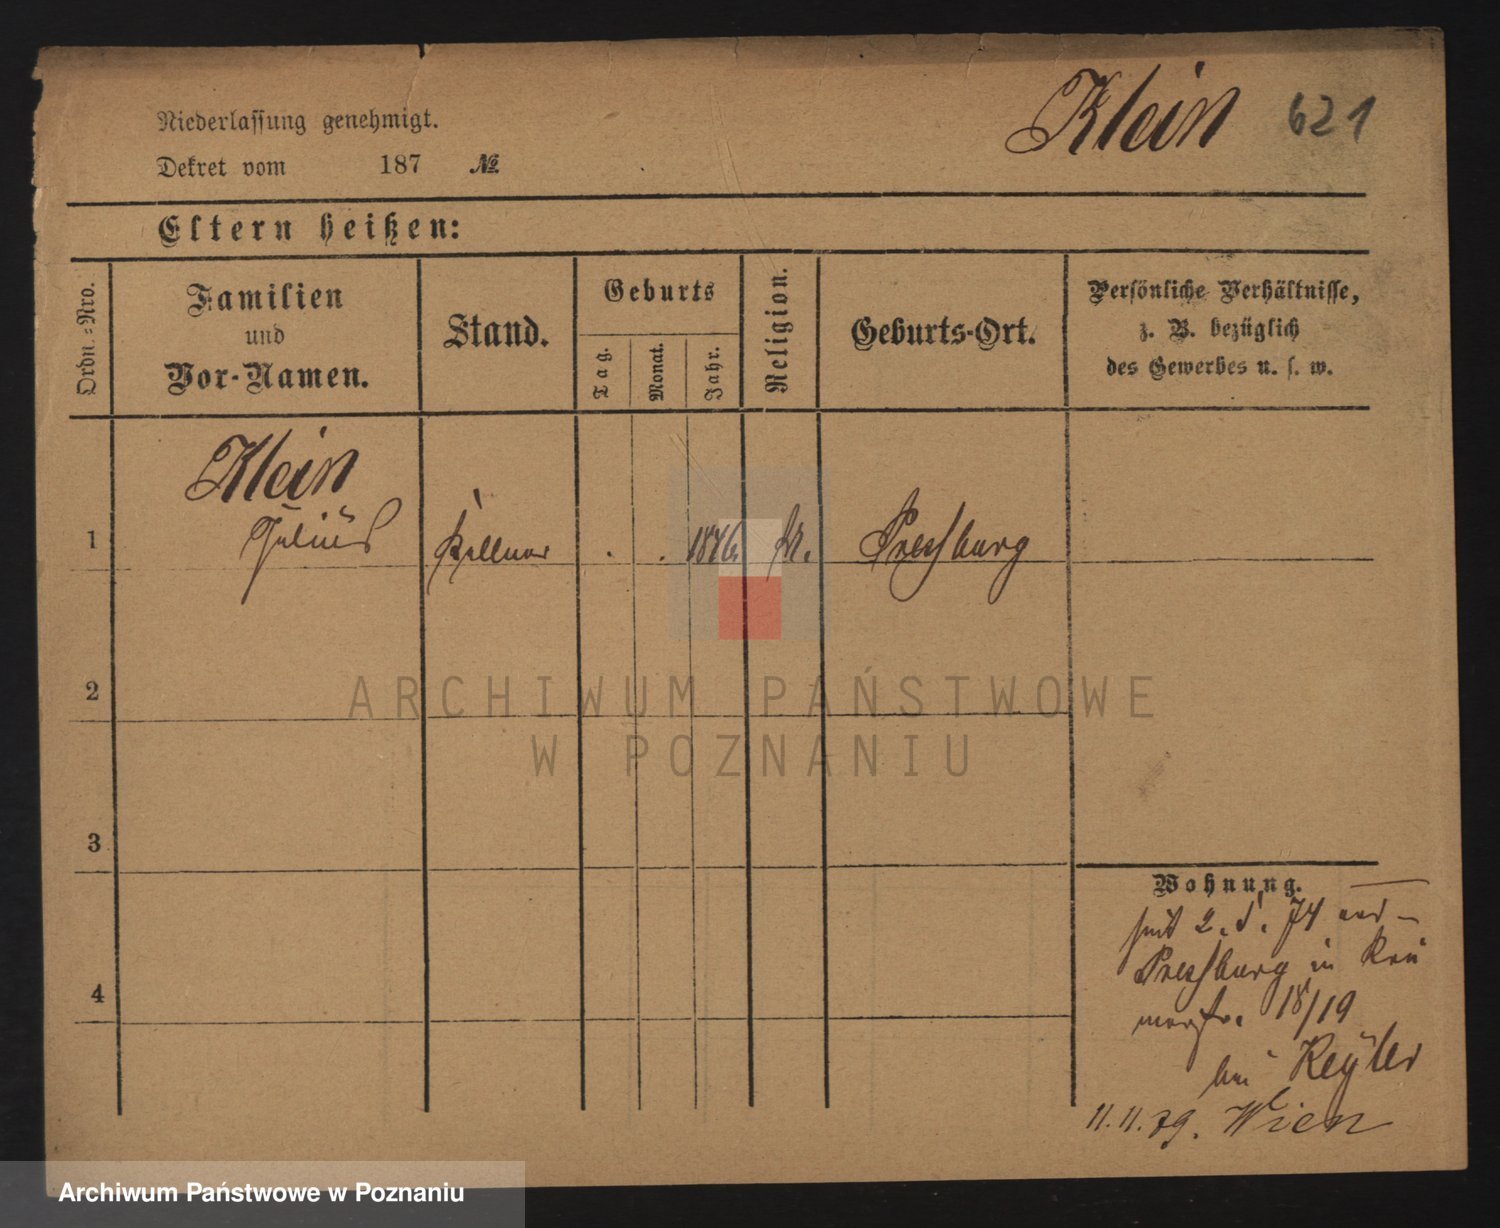 Klein 621
Niederlassung genehmigt.
Dekret vom 187 №
Eltern heißen:
Ordn.-Nro.
Familien
und
Vor-Namen.
Stand.
Geburts
Tag.
Monat.
Jahr.
Religion.
Geburts-Ort.
Persönliche Verhältnisse,
z. B. bezüglich
des Gewerbes u. s. w.
Klein
1 Julius Kellner . . 1846 Pressburg
2
3
4
Wohnung.
seit 2. 74
Pressburg in
18/19
bei
11.11.79. Wien
ARCHIWUM PAŃSTWOWE
W POZNANIU
Archiwum Państwowe w Poznaniu